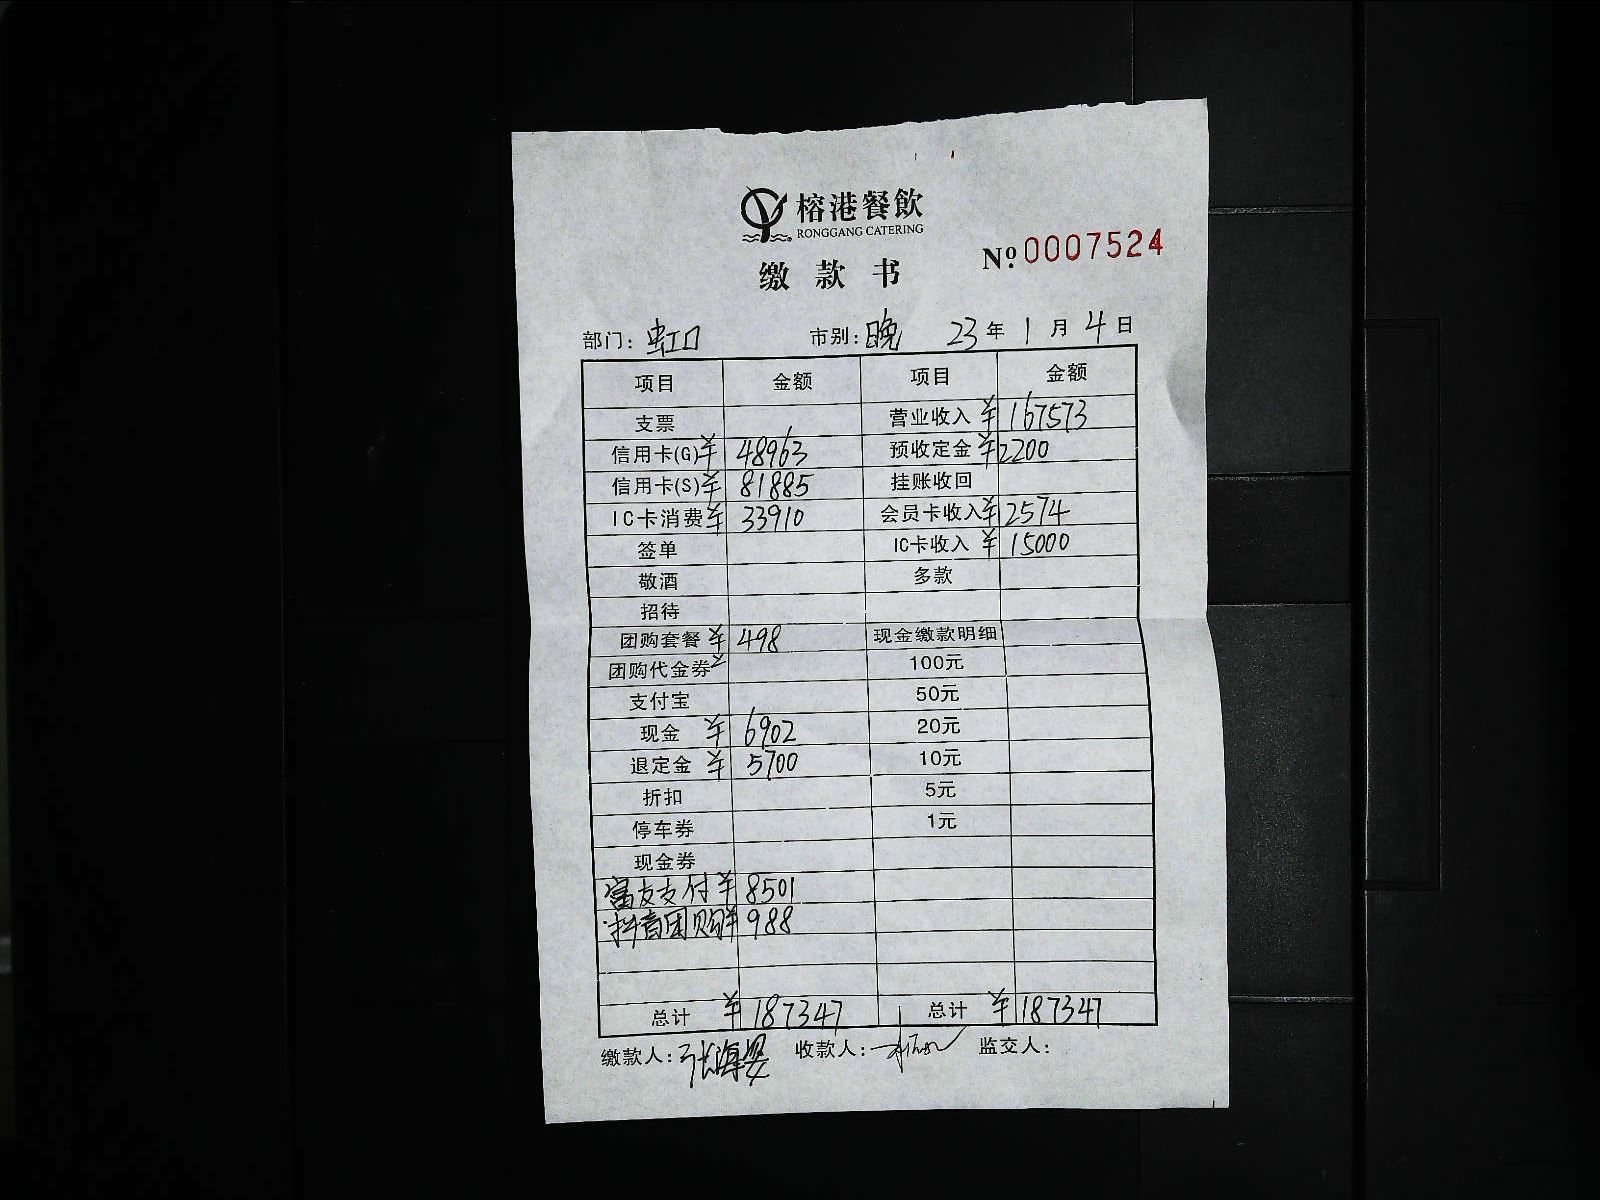 榕港餐飲
RONGGANG CATERING
缴款书
Nº.0007524
部门：虹口 市别：晚 23年1月4日
项目 金额 项目 金额
支票 营业收入 ¥167573
信用卡(G) ¥48963 预收定金 ¥2200
信用卡(S) ¥81885 挂账收回
IC卡消费 ¥33910 会员卡收入 ¥2574
签单 IC卡收入 ¥15000
敬酒 多款
招待
团购套餐 ¥498 现金缴款明细
团购代金券 100元
支付宝 50元
现金 ¥6902 20元
退定金 ¥5700 10元
折扣 5元
停车券 1元
现金券
富友支付 ¥8501
抖音团购 ¥988
总计 ¥187347 总计 ¥187347
缴款人：张海 收款人： 监交人：